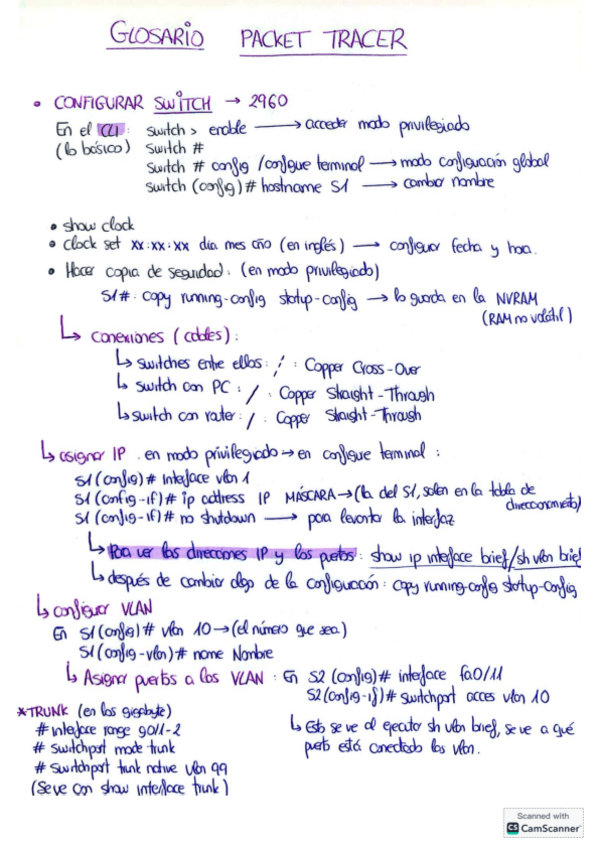 GLOSARIO PACKET TRACER
• CONFIGURAR SWITCH → 2960
En el CLI : switch > enable → acceder modo privilegiado
(lo básico) switch #
switch # config / configure terminal → modo configuración global
switch (config) # hostname S1 → cambiar nombre
• show clock
• clock set xx:xx:xx dia mes año (en inglés) → configurar fecha y hora.
• Hacer copia de seguridad : (en modo privilegiado)
S1# : copy running-config startup-config → lo guarda en la NVRAM
(RAM no volátil)
↳ conexiones (cables) :
↳ switches entre ellos : / : Copper Cross-Over
↳ switch con PC : / : Copper Straight-Through
↳ switch con router : / : Copper Straight-Through
↳ asignar IP . en modo privilegiado → en configure terminal :
S1 (config) # Interface vlan 1
S1 (config-if) # ip address IP MÁSCARA → (la del S1, salen en la tabla de
direccionamiento)
S1 (config-if) # no shutdown → para levantar la interfaz
↳ Para ver las direcciones IP y los puertos : show ip interface brief / sh vlan brief
↳ después de cambiar algo de la configuración : copy running-config startup-config
↳ configurar VLAN
En S1 (config) # vlan 10 → (el número que sea)
S1 (config-vlan) # name Nombre
↳ Asignar puertos a las VLAN : En S2 (config) # interface fa0/11
S2 (config-if) # switchport acces vlan 10
↳ Esto se ve al ejecutar sh vlan brief, se ve a qué
puerto está conectado las vlan.
*TRUNK (en los gigabyte)
# interface range g0/1-2
# switchport mode trunk
# switchport trunk native vlan 99
(Se ve con show interface trunk)
Scanned with
CS CamScanner